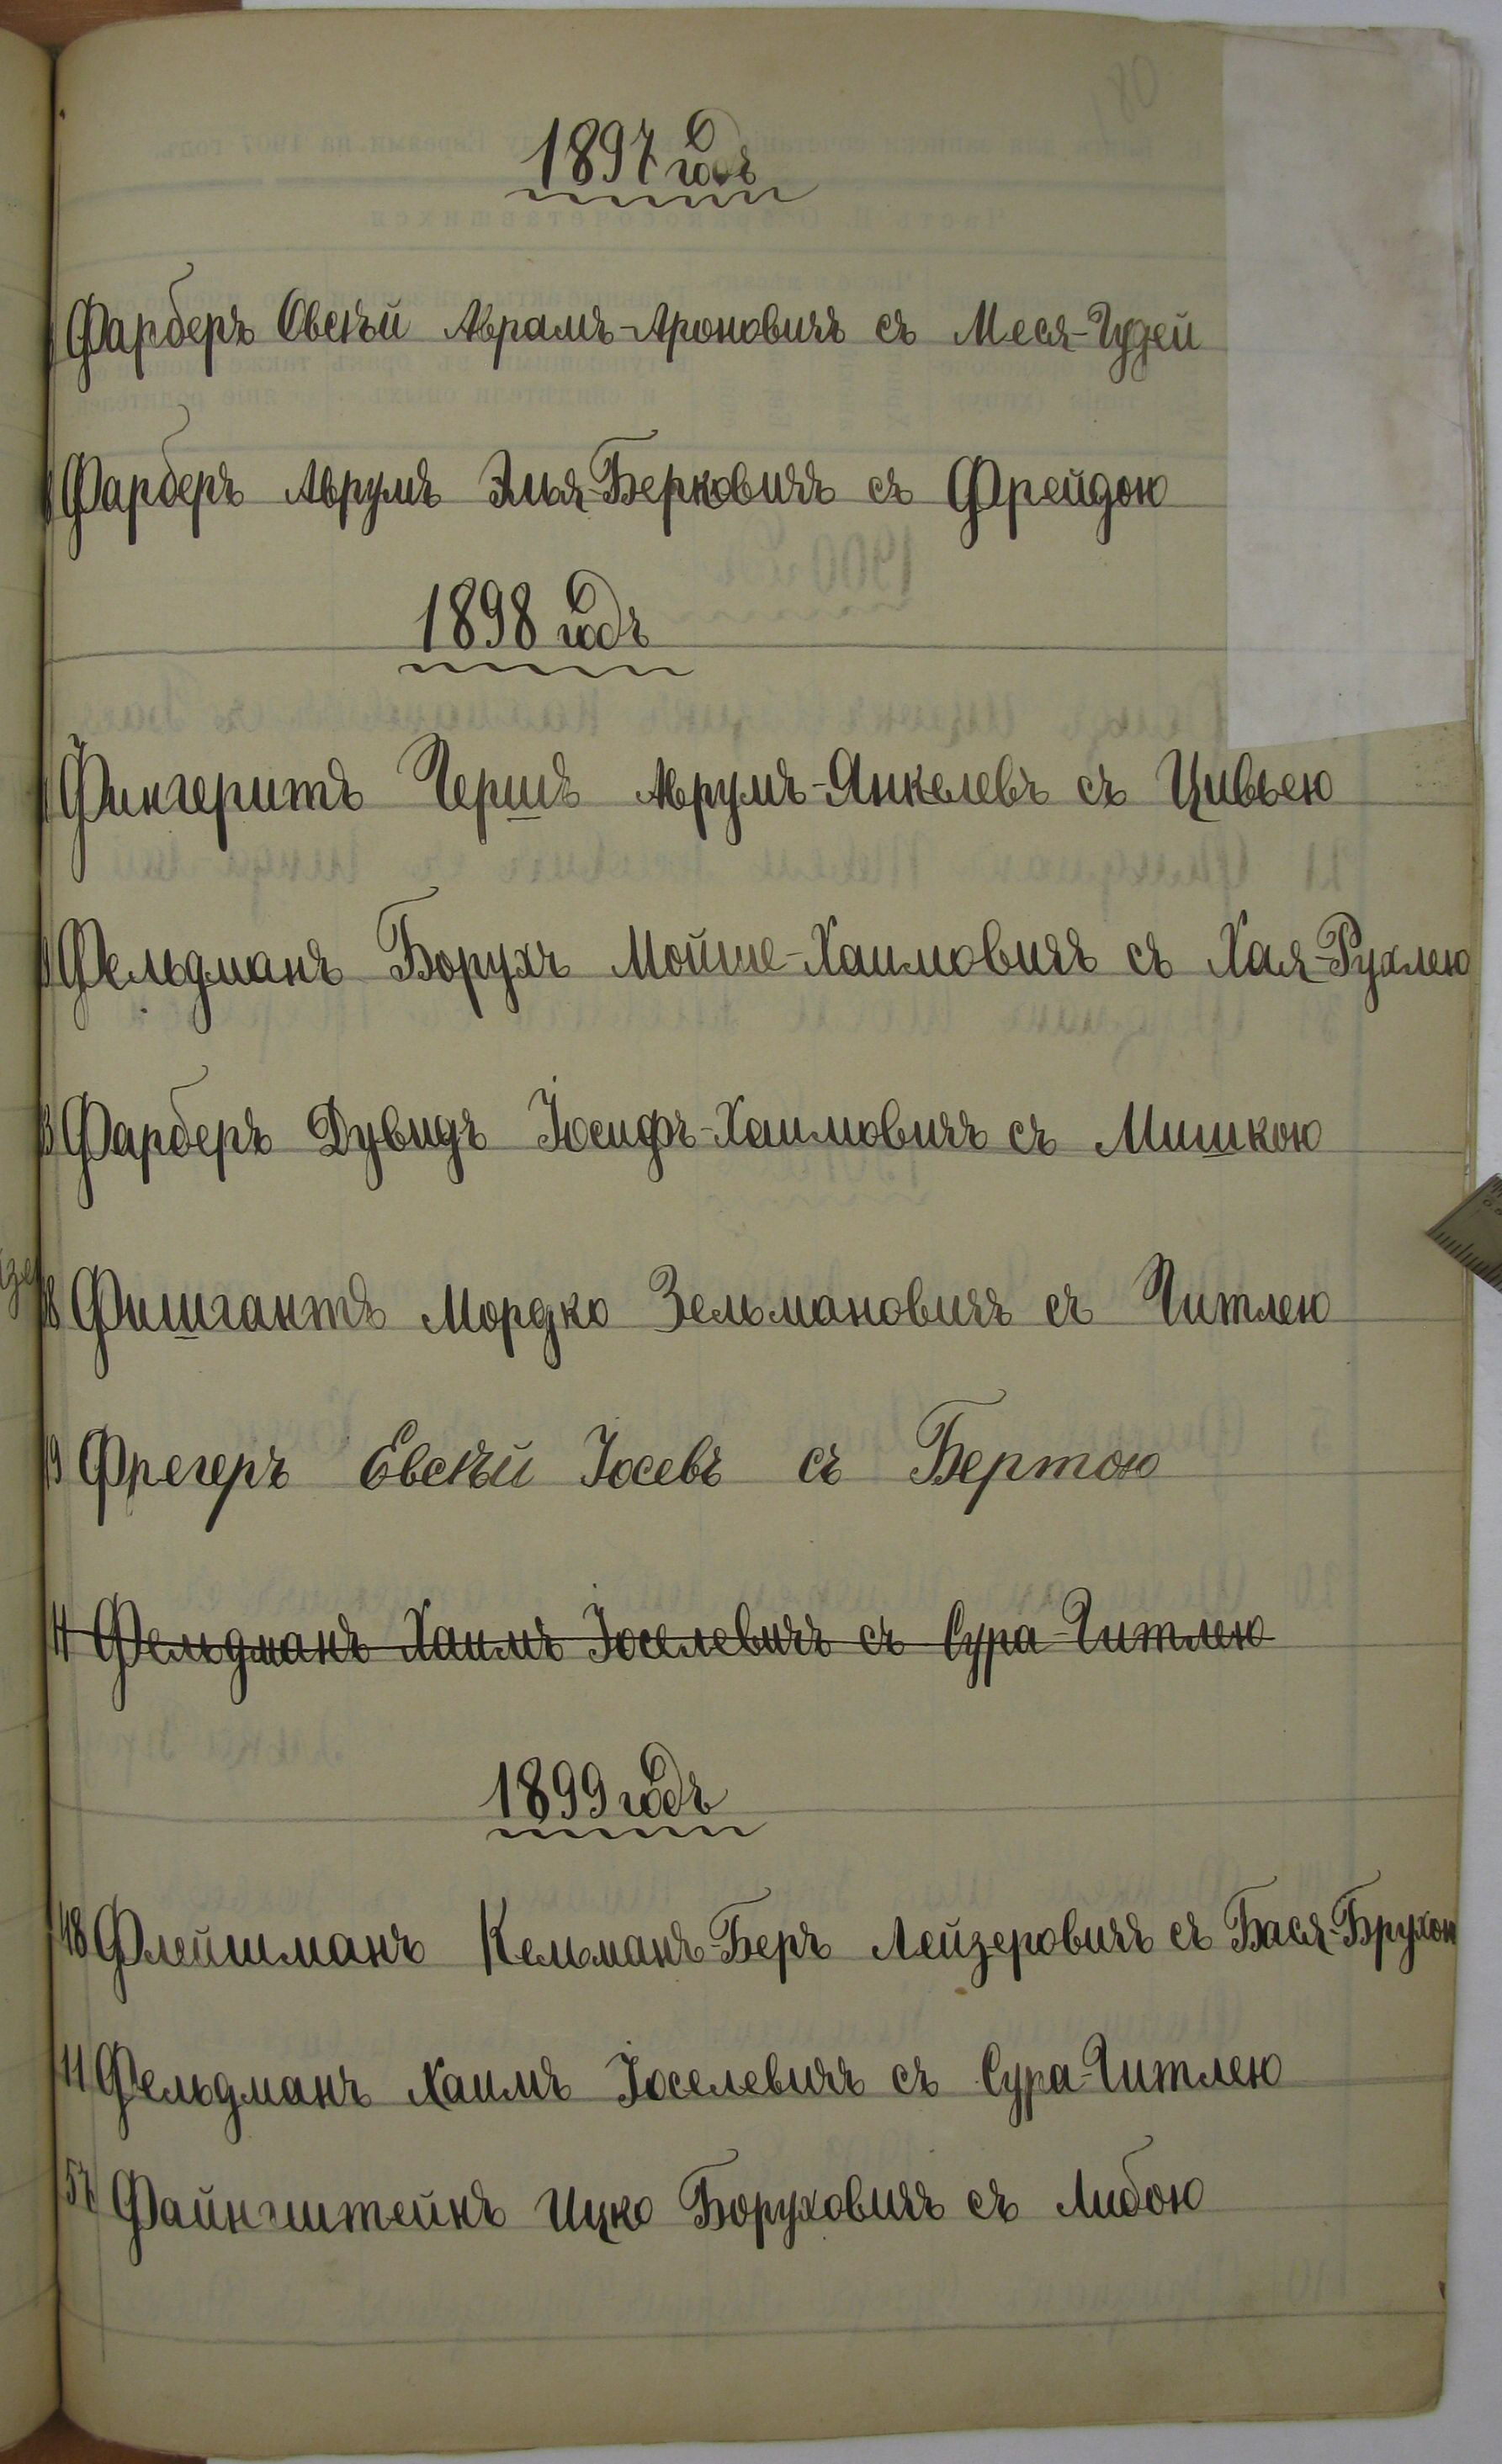 1897 годъ
Фарберъ Овсѣй Аврамъ-Ароновичъ съ Меся-Гудей
Фарберъ Аврумъ Элья-Берковичъ съ Фрейдою
1898 годъ
Фингеритъ Гершъ Аврумъ-Янкелевъ съ Цивьею
Фельдманъ Борухъ Мойше-Хаимовичъ съ Хая-Рухлею
Фарберъ Дувидъ Іосифъ-Хаимовичъ съ Мишкою
Фишгантъ Мордко Зельмановичъ съ Гитлею
Фрегеръ Евсѣй Іосевъ съ Бертою
11 Фельдманъ Хаимъ Іоселевичъ съ Сура-Гитлею
1899 годъ
48 Флейшманъ Кельманъ-Беръ Лейзеровичъ съ Бася-Брухою
11 Фельдманъ Хаимъ Іоселевичъ съ Сура-Гитлею
57 Файнштейнъ Ицко Боруховичъ съ Либою